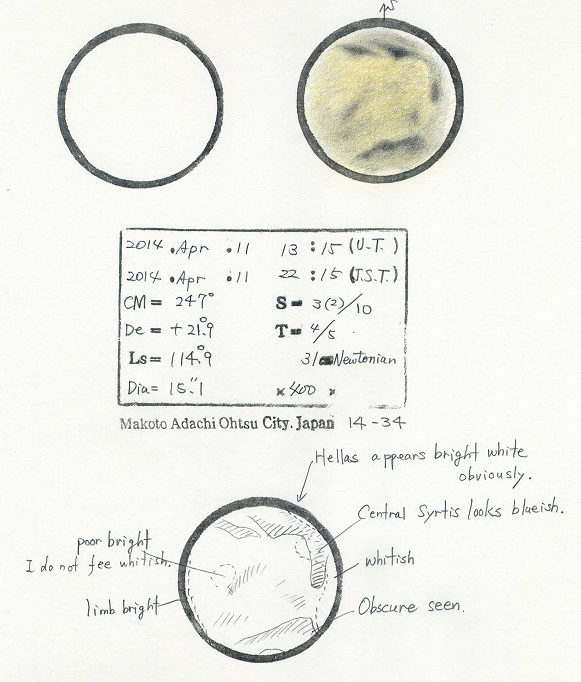 S
2014 . Apr . 11 13 : 15 (U.T.)
2014 . Apr . 11 22 : 15 (J.S.T.)
CM = 247° S = 3(2)/10
De = +21.°9 T = 4/5
Ls = 114.°9 31cm Newtonian
Dia = 15."1 × 400 ×
Makoto Adachi Ohtsu City. Japan 14-34
Hellas appears bright white
obviously.
Central Syrtis looks blueish.
poor bright
I do not fee whitish.
whitish
limb bright
Obscure seen.